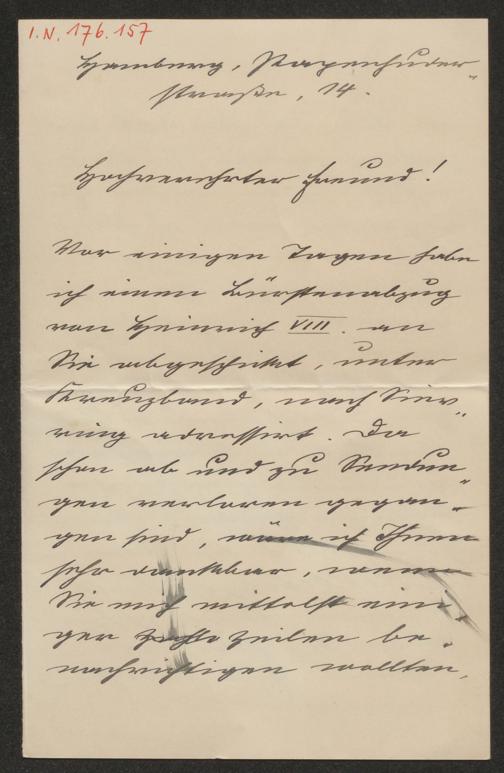 I.N. 176.157
Hamburg, Papenhuder-
straße, 14.
Hochverehrter Freund!
Vor einigen Tagen habe
ich einen Bürstenabzug
von Heinrich VIII. an
Sie abgeschickt, unter
Kreuzband, nach Sieve-
ring adressirt. Da
schon ab und zu Sendun-
gen verloren gegan-
gen sind, wäre ich Ihnen
sehr dankbar, wenn
Sie mich mittelst eini-
ger Zeilen be-
nachrichtigen wollten,